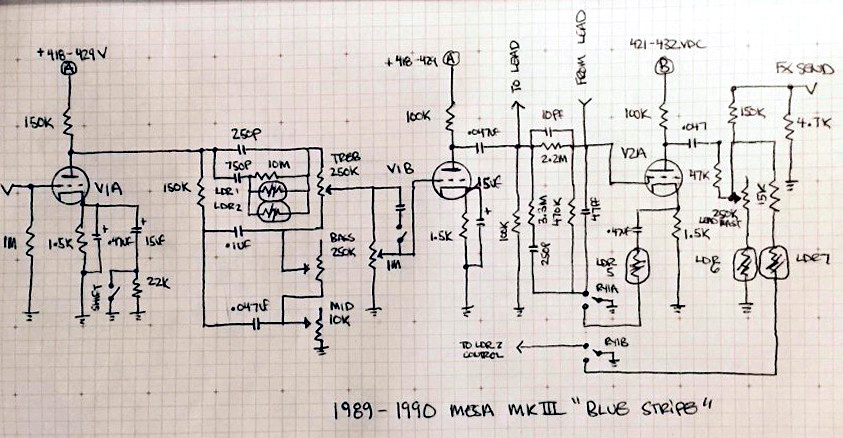 +418-424V
A
150K
V1A
1M
1.5K
.47uF
15uF
SHIFT
22K
250P
750P
10M
LDR1
LDR2
150K
.1uF
.047uF
TREB
250K
BASS
250K
MID
10K
V1B
1M
+418-424
A
100K
.047uF
15uF
1.5K
TO LEAD
FROM LEAD
10PF
2.2M
100K
3.3M
250P
470K
47PF
421-432 VDC
B
100K
V2A
.047
47K
.47uF
1.5K
LDR
5
RY1A
RY1B
TO LDR 2
CONTROL
FX SEND
150K
4.7K
250K
15K
LDR
6
LDR7
1989-1990 MESA MKIII "BLUE STRIPE"